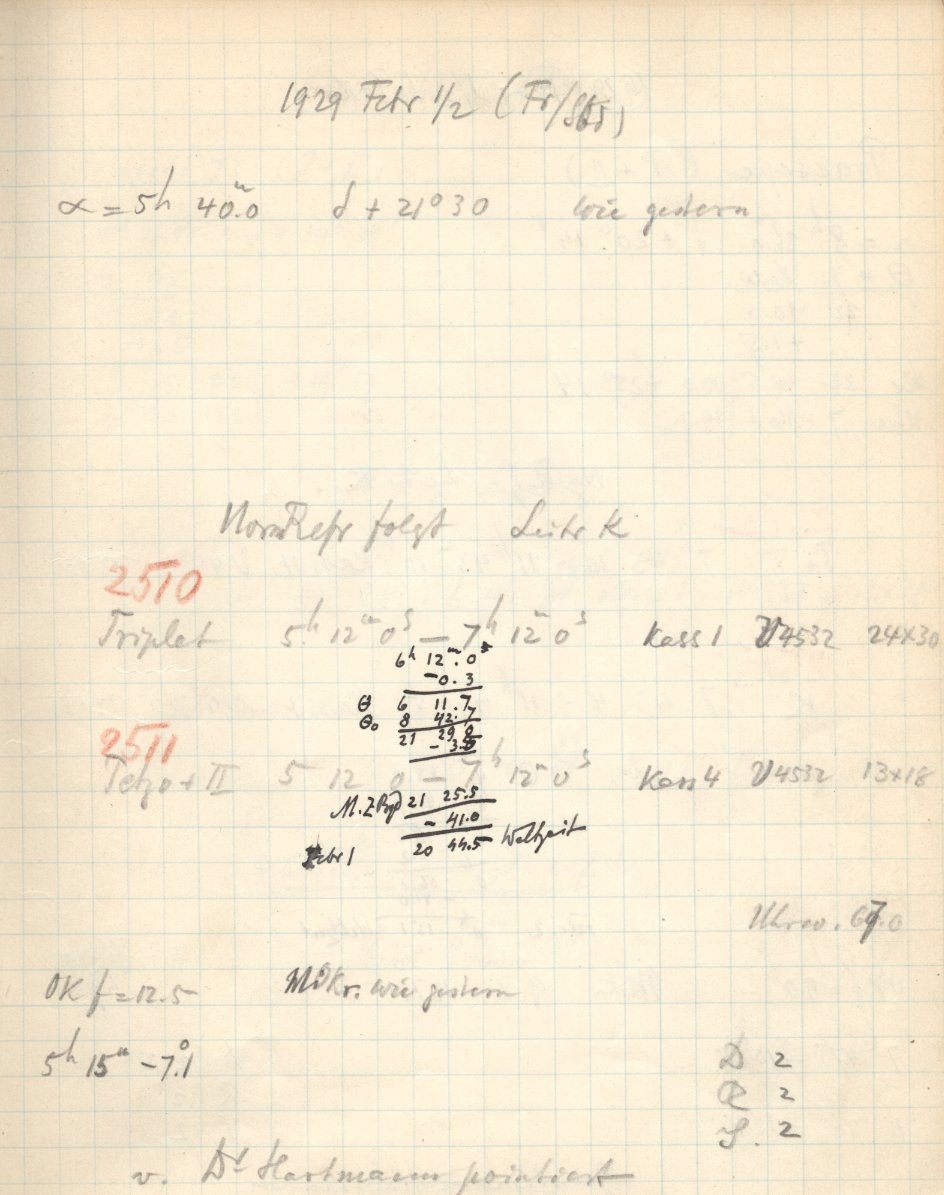 1929 Febr 1/2 (Fr/Sbd)
α = 5h 40.0m δ + 21° 30 wie gestern
NormRefr folgt Leitr K
2510
Triplet 5h 12m 0s — 7h 12m 0s Kass 1 4532 24×30
6h 12m.0
-0.3
θ 6 11.7
θo 8 42.7
21 29.0
- 3.5
2511
+ II 5 12 0 — 7h 12m 0s Kass 4 4532 13×18
M.Z Bbg 21 25.5
- 41.0
Febr 1 20 44.5 Weltzeit
Uhrw. 67.0
OK f = 12.5 Mikr. wie gestern
5h 15m -7.1°
D 2
R 2
S. 2
v. Dr Hartmann pointiert